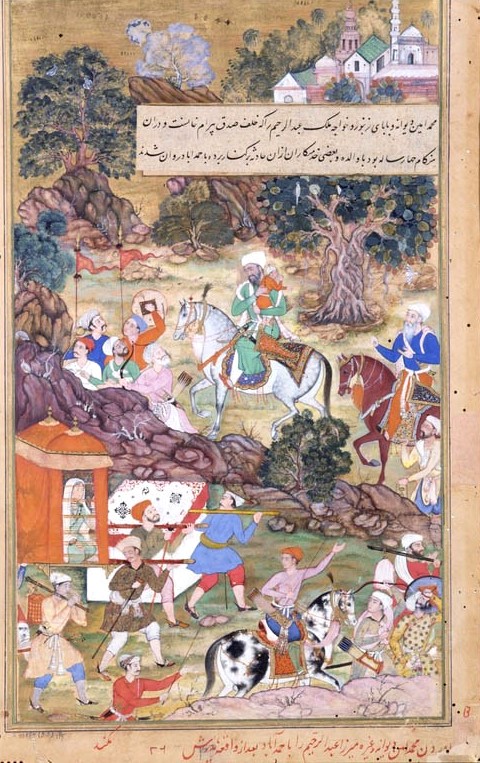 محمد امین دیوانه و بابای زنبور و خواجه ملک عبدالرحیم را که خلف صدق بیرام خانست و دران
هنگام چهار ساله بود با والده و بعضی خدمتکاران ازان حادثه برکنار برده باحمدآباد روان شدند
محمد امین دیوانه وغیره میرزا عبدالرحیم را باحمدآباد بعد از واقعه